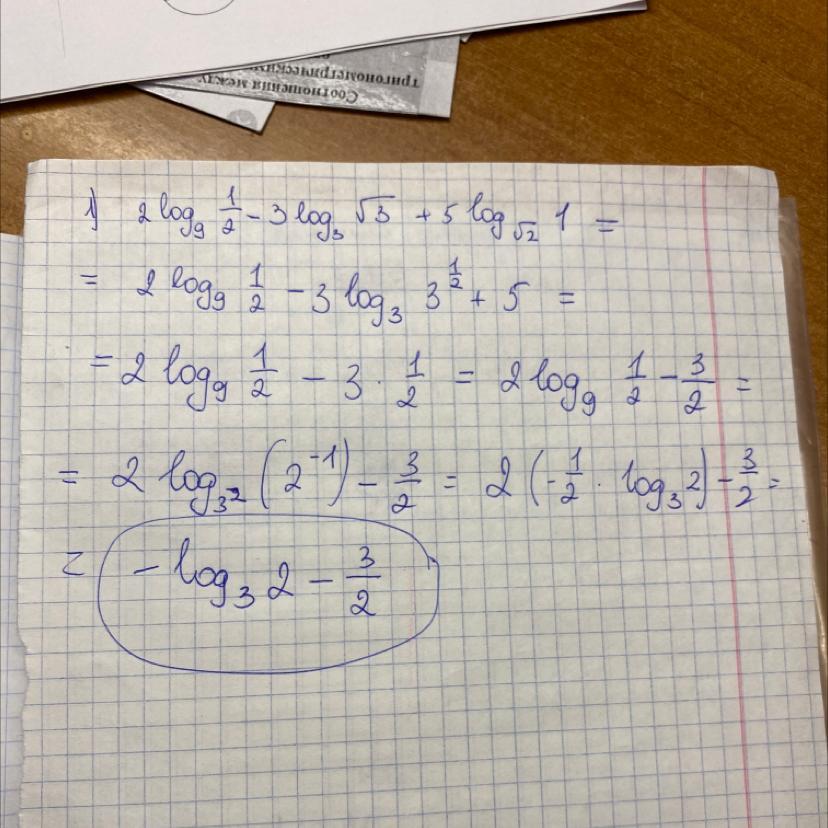 Соотношения между
тригонометрическими
1) 2 log₉ 1/2 - 3 log₃ √3 + 5 log_√2 1 =
= 2 log₉ 1/2 - 3 log₃ 3^(1/2) + 5 =
= 2 log₉ 1/2 - 3 · 1/2 = 2 log₉ 1/2 - 3/2 =
= 2 log_3² (2⁻¹) - 3/2 = 2 (-1/2 · log₃ 2) - 3/2 =
= - log₃ 2 - 3/2